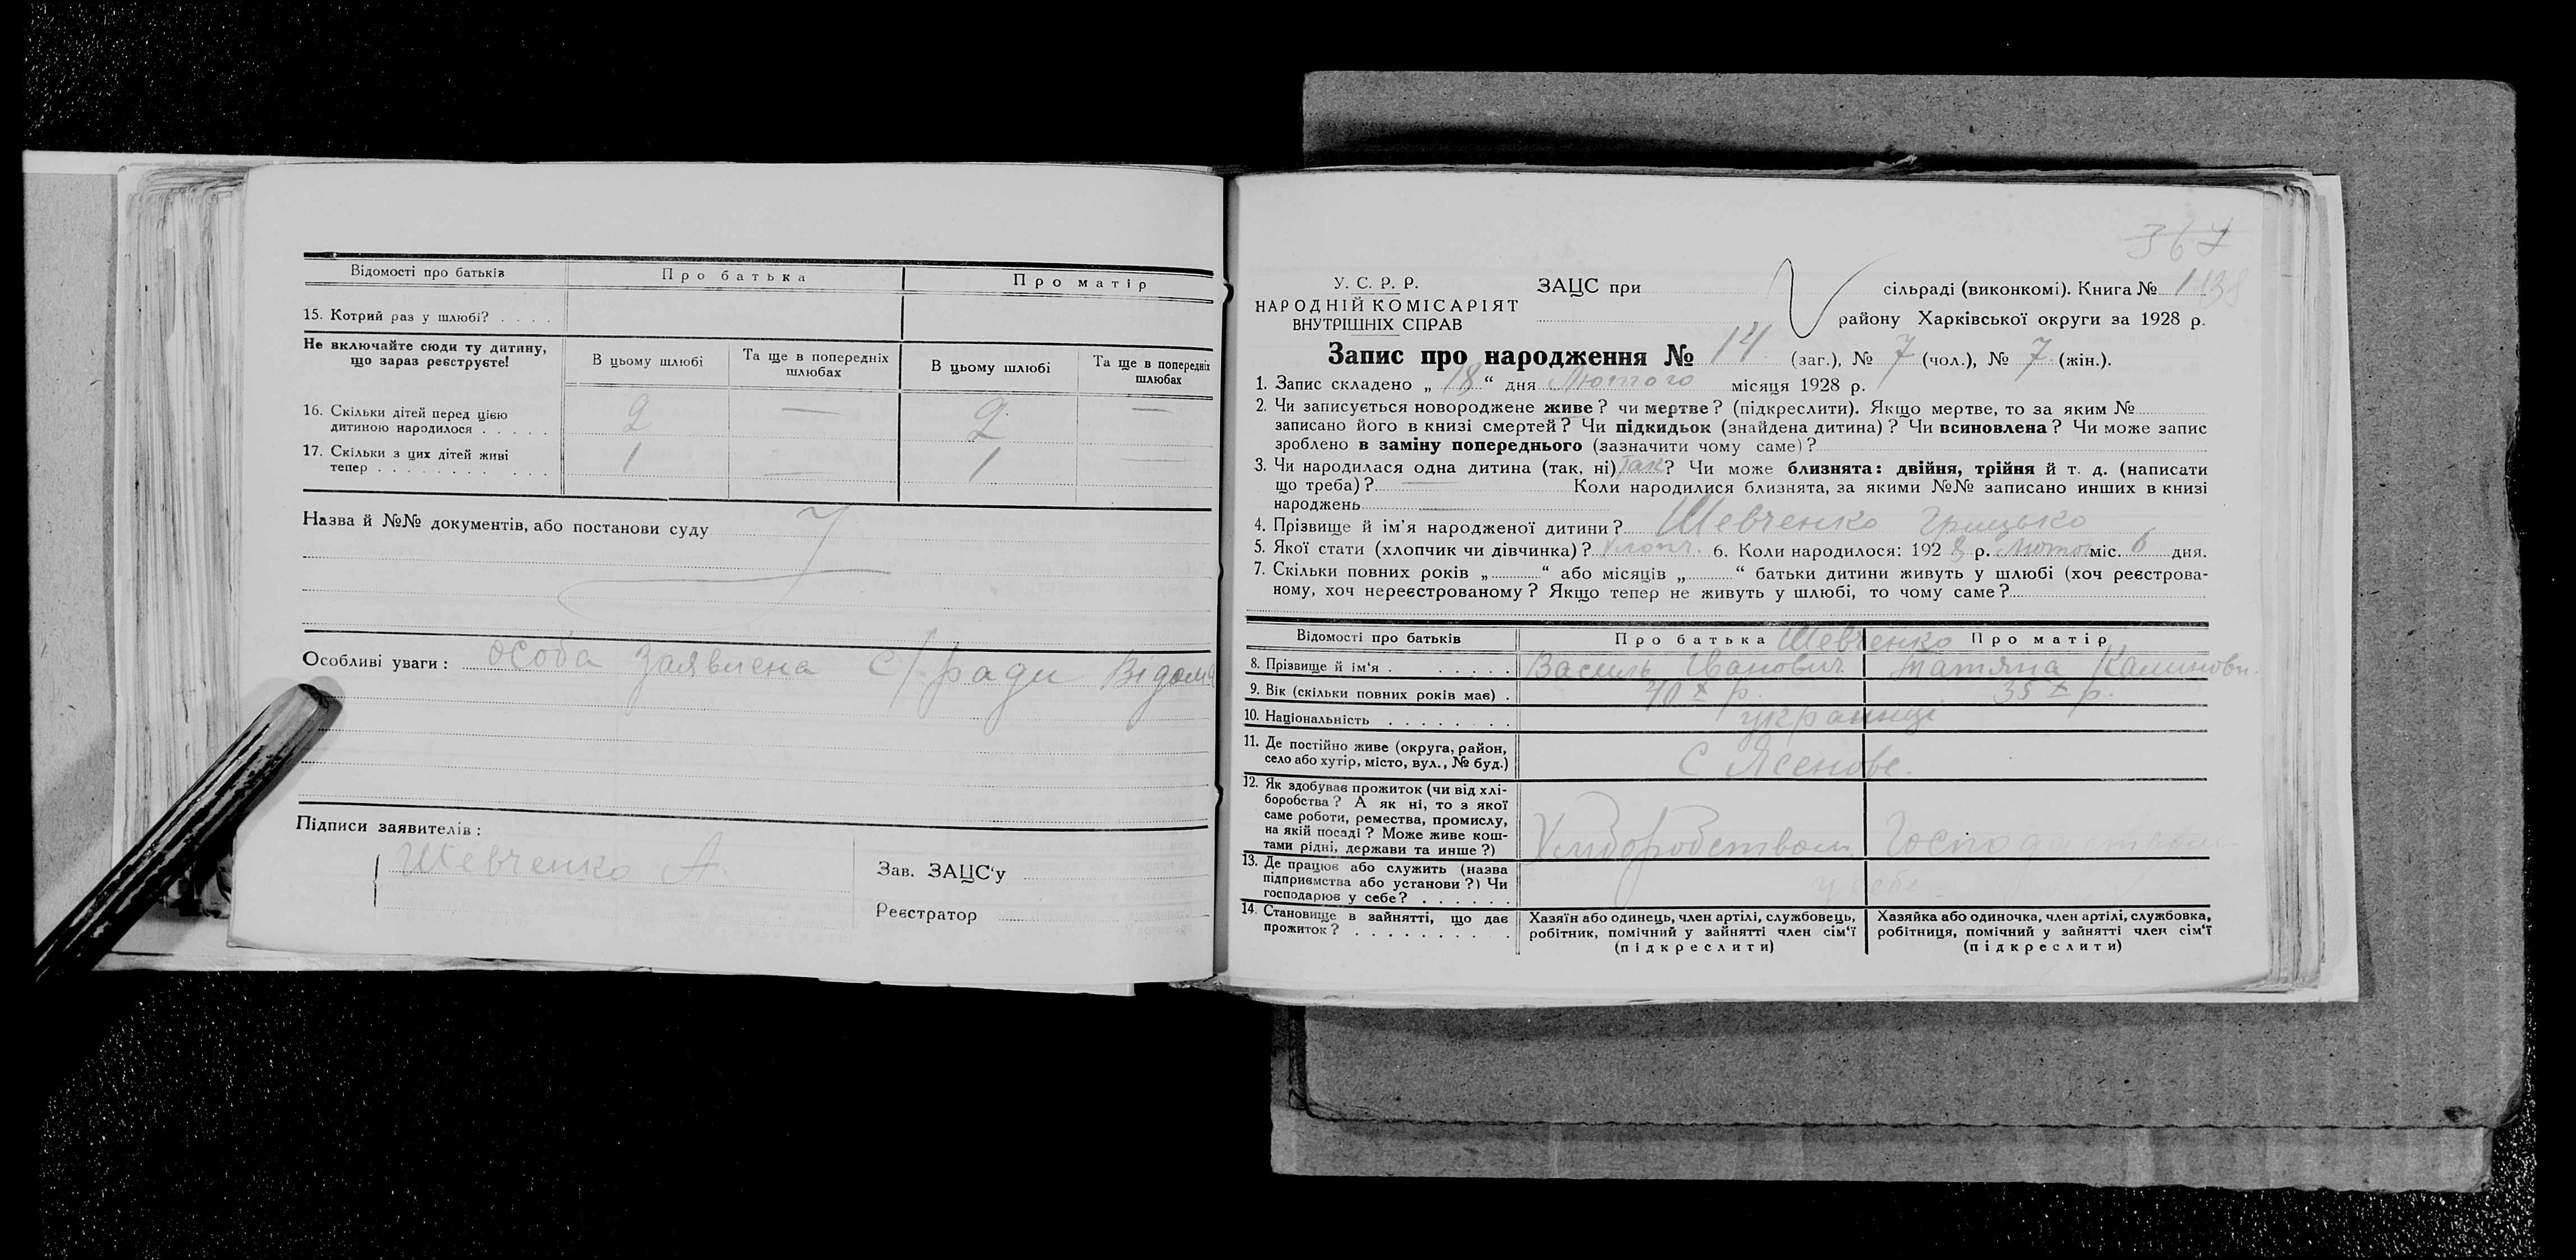 Відомості про батьків Про батька Про матір
15. Котрий раз у шлюбі? . . . .
Не включайте сюди ту дитину, що зараз реєструєте!
В цьому шлюбі Та ще в попередніх шлюбах В цьому шлюбі Та ще в попередніх шлюбах
16. Скільки дітей перед цією
дитиною народилося . . . . . 2 — 2 —
17. Скільки з цих дітей живі
тепер . . . . . . . . . . . 1 — 1 —
Назва й №№ документів, або постанови суду
Особливі уваги: особа заявлена с/ради Відома
Підписи заявителів:
Шевченко А.
Зав. ЗАЦС'у
Реєстратор
367
У. С. Р. Р.
НАРОДНІЙ КОМІСАРІЯТ
ВНУТРІШНІХ СПРАВ
ЗАЦС при сільраді (виконкомі). Книга №
району Харківської округи за 1928 р.
Запис про народження № 14 (заг.), № 7 (чол.), № 7 (жін.).
1. Запис складено „ 18 “ дня Лютого місяця 1928 р.
2. Чи записується новороджене живе? чи мертве? (підкреслити). Якщо мертве, то за яким №
записано його в книзі смертей? Чи підкидьок (знайдена дитина)? Чи всиновлена? Чи може запис
зроблено в заміну попереднього (зазначити чому саме)?
3. Чи народилася одна дитина (так, ні) так? Чи може близнята: двійня, трійня й т. д. (написати
що треба)? — Коли народилися близнята, за якими №№ записано инших в книзі
народжень
4. Прізвище й ім'я народженої дитини? Шевченко Грицько
5. Якої стати (хлопчик чи дівчинка)? хлопч. 6. Коли народилося: 1928 р. Лютого міс. 6 дня.
7. Скільки повних років „ “ або місяців „ “ батьки дитини живуть у шлюбі (хоч реєстрова-
ному, хоч нереєстрованому? Якщо тепер не живуть у шлюбі, то чому саме?
Відомості про батьків Про батька Шевченко Про матір
8. Прізвище й ім'я . . . . . . Василь Іванович Татяна Калиновн.
9. Вік (скільки повних років має) . 40 р. 35 р.
10. Національність . . . . . . . . українці
11. Де постійно живе (округа, район,
село або хутір, місто, вул., № буд.) С Ясенове.
12. Як здобуває прожиток (чи від хлі-
боробства? А як ні, то з якої
саме роботи, ремества, промислу,
на якій посаді? Може живе кош-
тами рідні, держави та инше?) Хліборобством
13. Де працює або служить (назва
підприємства або установи?) Чи
господарює у себе? . . . . . . у себе
14. Становище в зайнятті, що дає
прожиток? . . . . . . . . .
Хазяїн або одинець, член артілі, службовець,
робітник, помічний у зайнятті член сім'ї
(підкреслити)
Хазяйка або одиночка, член артілі, службовка,
робітниця, помічний у зайнятті член сім'ї
(підкреслити)